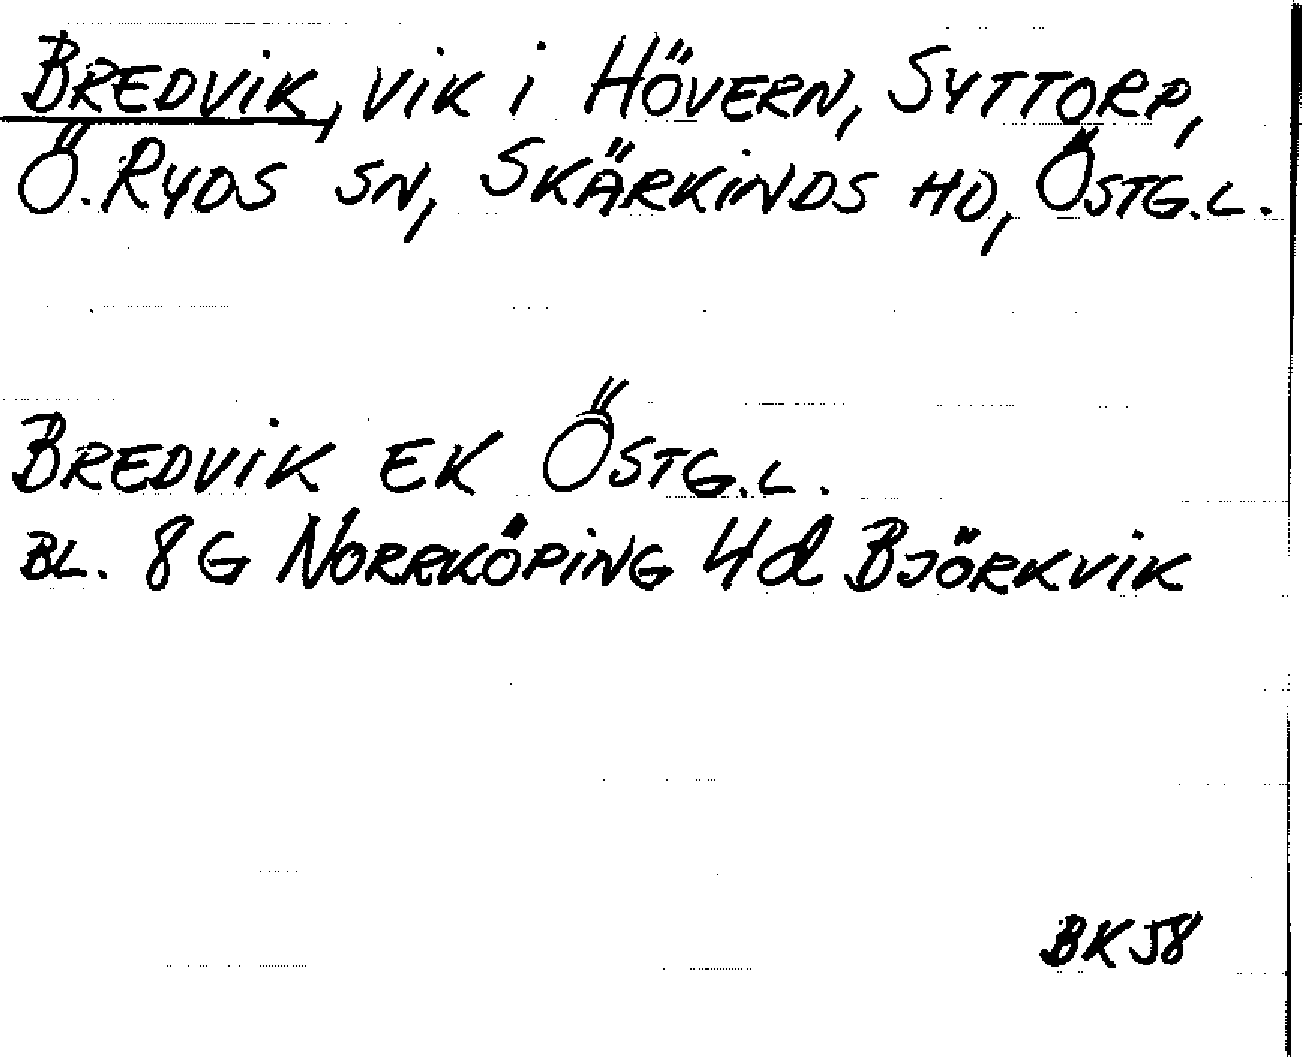 BREDVIK, VIK I HÖVERN, SYTTORP,
Ö. RYDS SN, SKÄRKINDS HD, ÖSTG.L.
BREDVIK EK ÖSTG.L.
BL. 8G NORRKÖPING 4d BJÖRKVIK
BK58